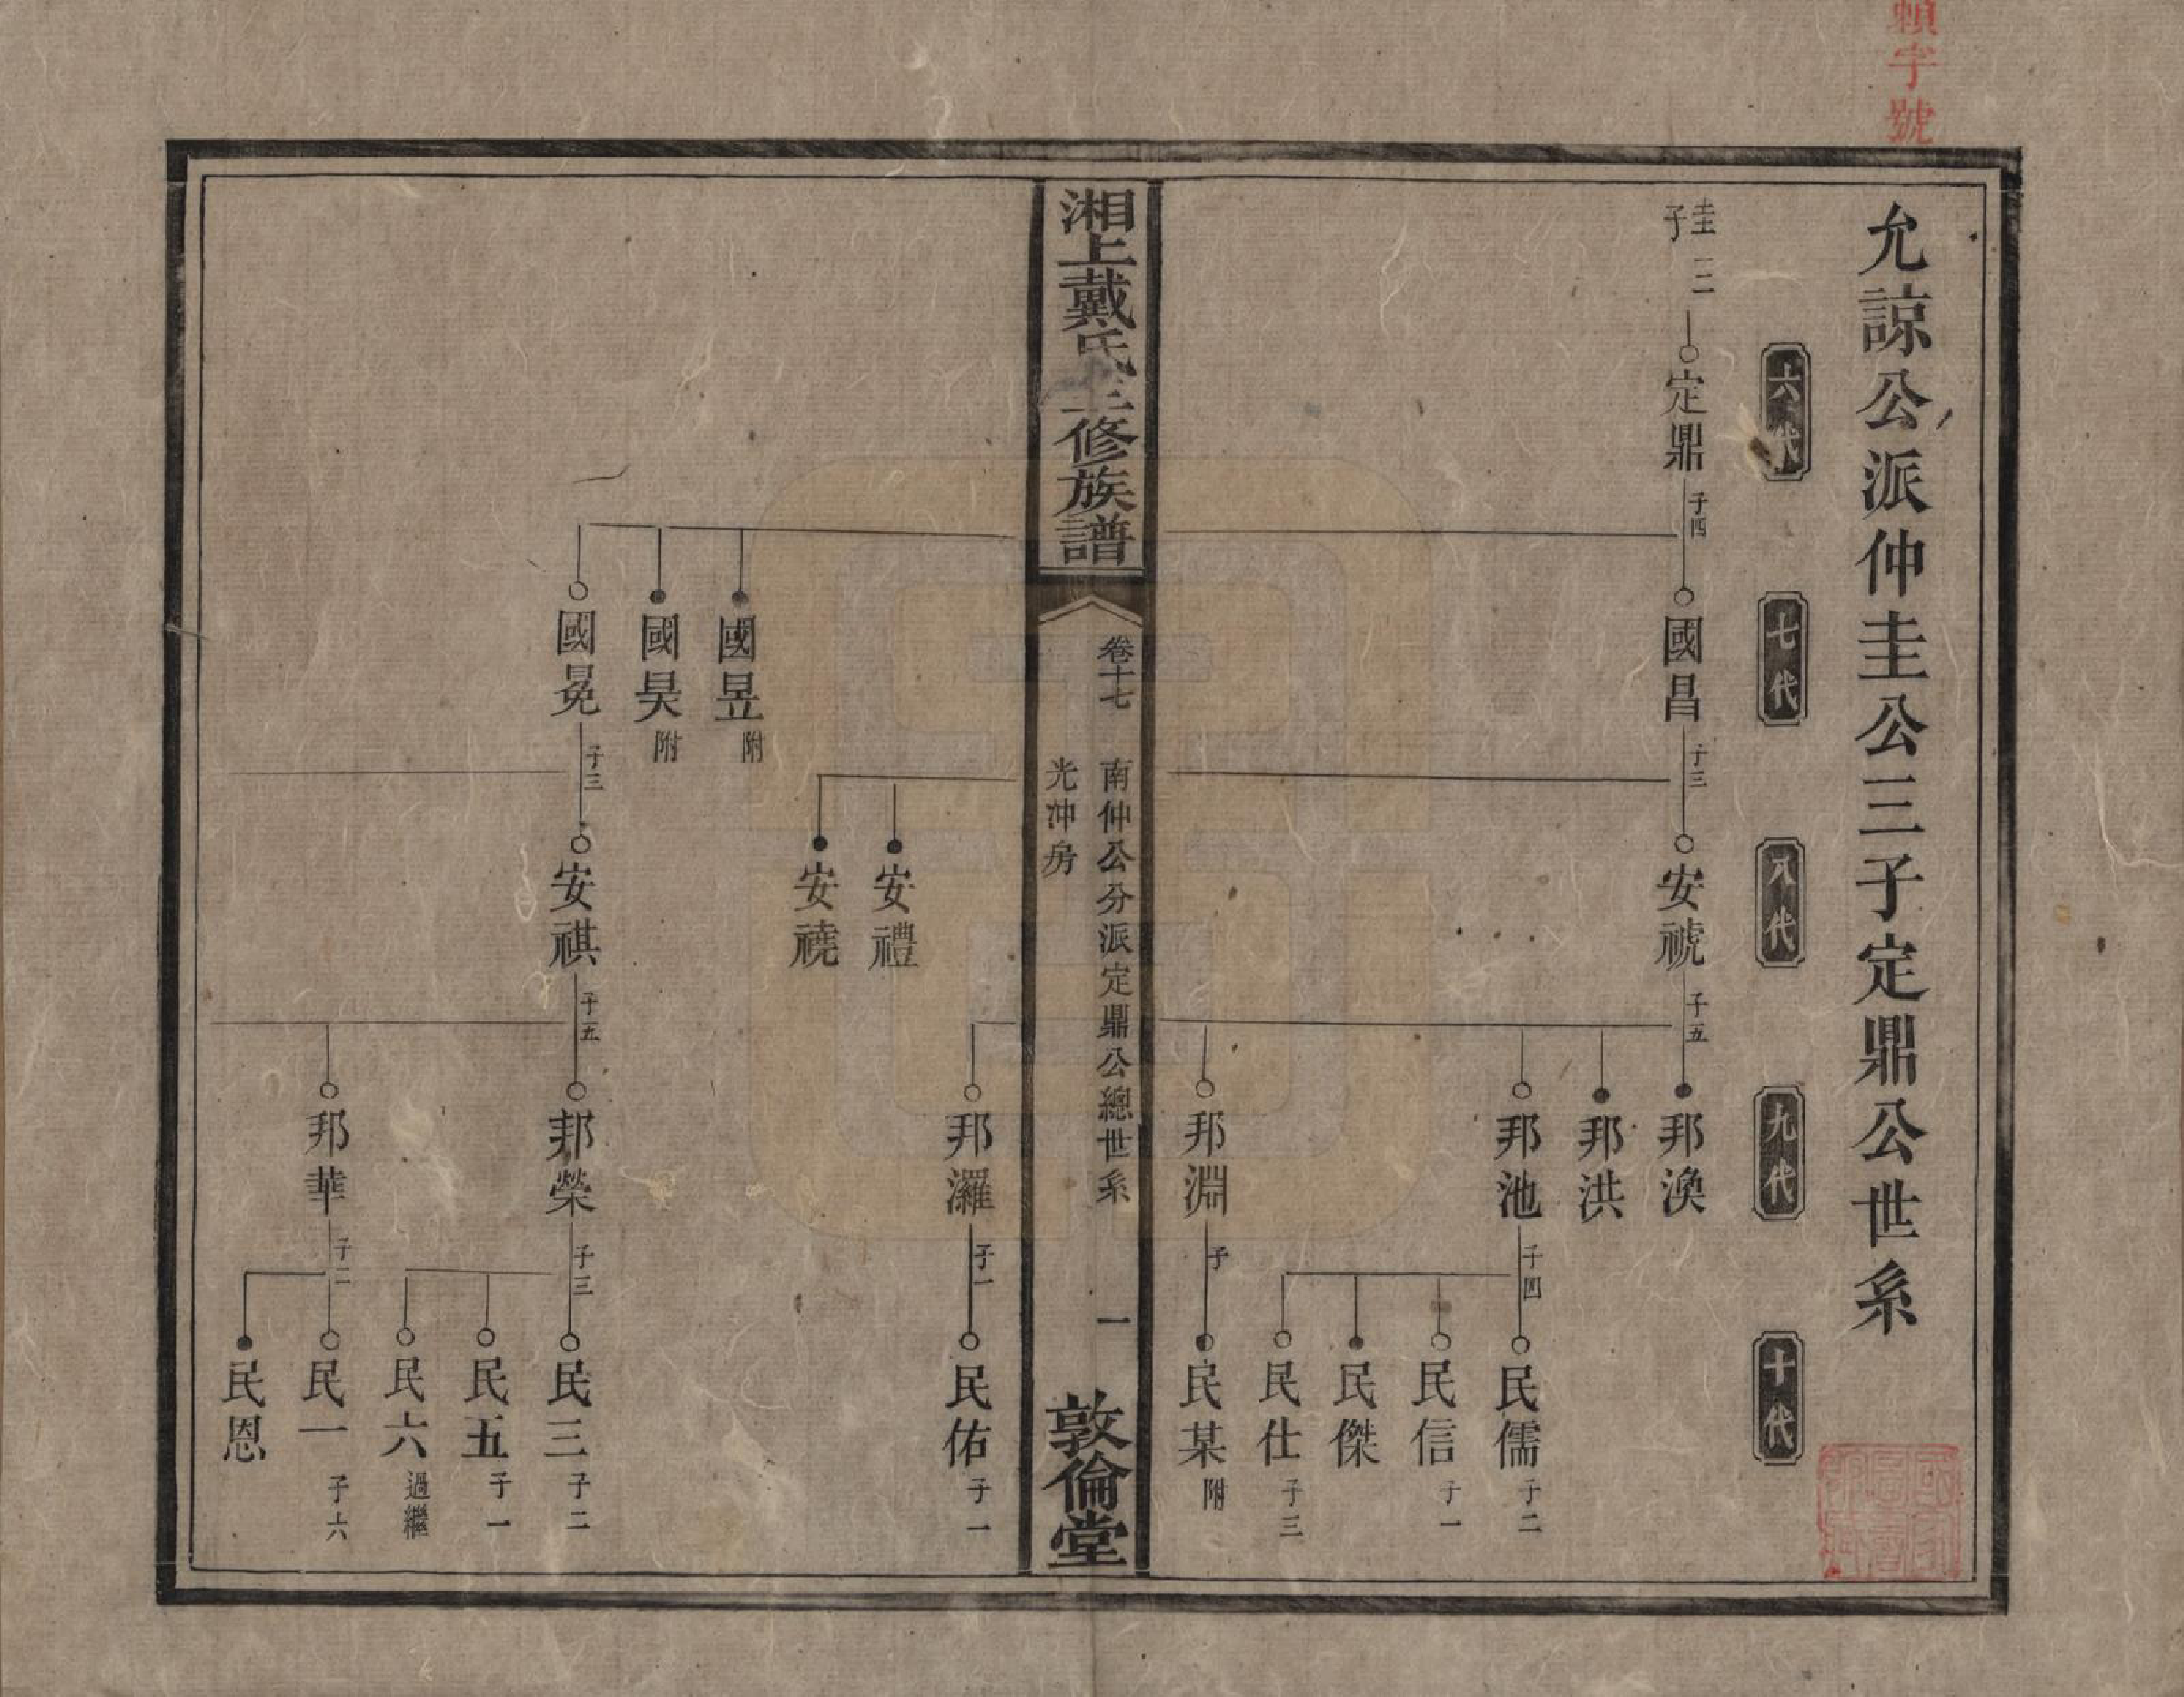 允諒公派仲圭公三子定鼎公世系
六代
七代
八代
九代
十代
圭三子
定鼎 子四
國昌 子三
安禠 子五
邦渙
邦洪
邦池 子四
民儒 子二
民信 子一
民傑
民仕 子三
邦淵 子
民某 附
湘上戴氏三修族譜
卷十七
南仲公分派定鼎公總世系
光沖房
一
敦倫堂
邦灑 子一
民佑 子一
安禮
安禱
國昱 附
國昊 附
國冕 子三
安祺 子五
邦榮 子三
民三 子二
民五 子一
民六 過繼
邦華 子二
民一 子六
民恩
字號